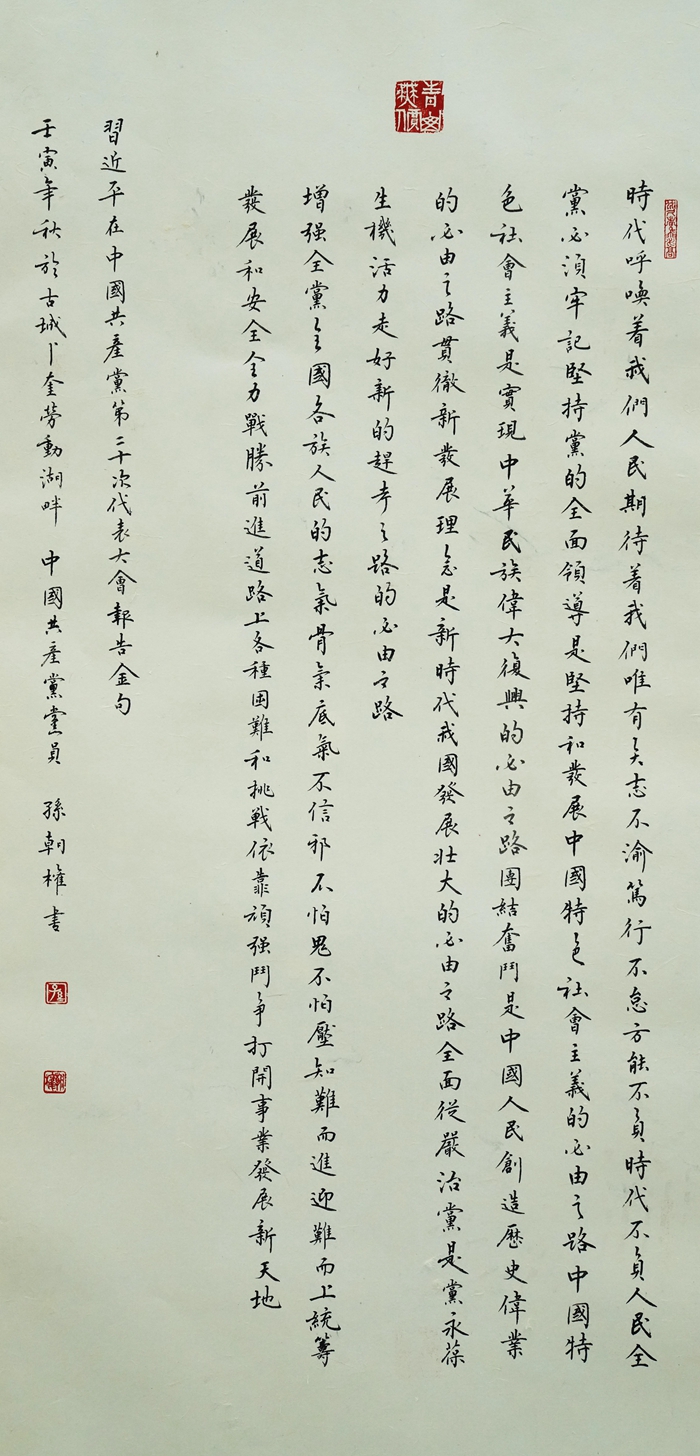 時代呼喚着我們人民期待着我們唯有矢志不渝篤行不怠方能不負時代不負人民全
黨必須牢記堅持黨的全面領導是堅持和發展中國特色社會主義的必由之路中國特
色社會主義是實現中華民族偉大復興的必由之路團結奮鬥是中國人民創造歷史偉業
的必由之路貫徹新發展理念是新時代我國發展壯大的必由之路全面從嚴治黨是黨永葆
生機活力走好新的趕考之路的必由之路
增强全黨全國各族人民的志氣骨氣底氣不信邪不怕鬼不怕壓知難而進迎難而上統籌
發展和安全全力戰勝前進道路上各種困難和挑戰依靠頑强鬥争打開事業發展新天地
習近平在中國共產黨第二十次代表大會報告金句
壬寅年秋於古城卜奎勞動湖畔 中國共產黨黨員 孫朝權書